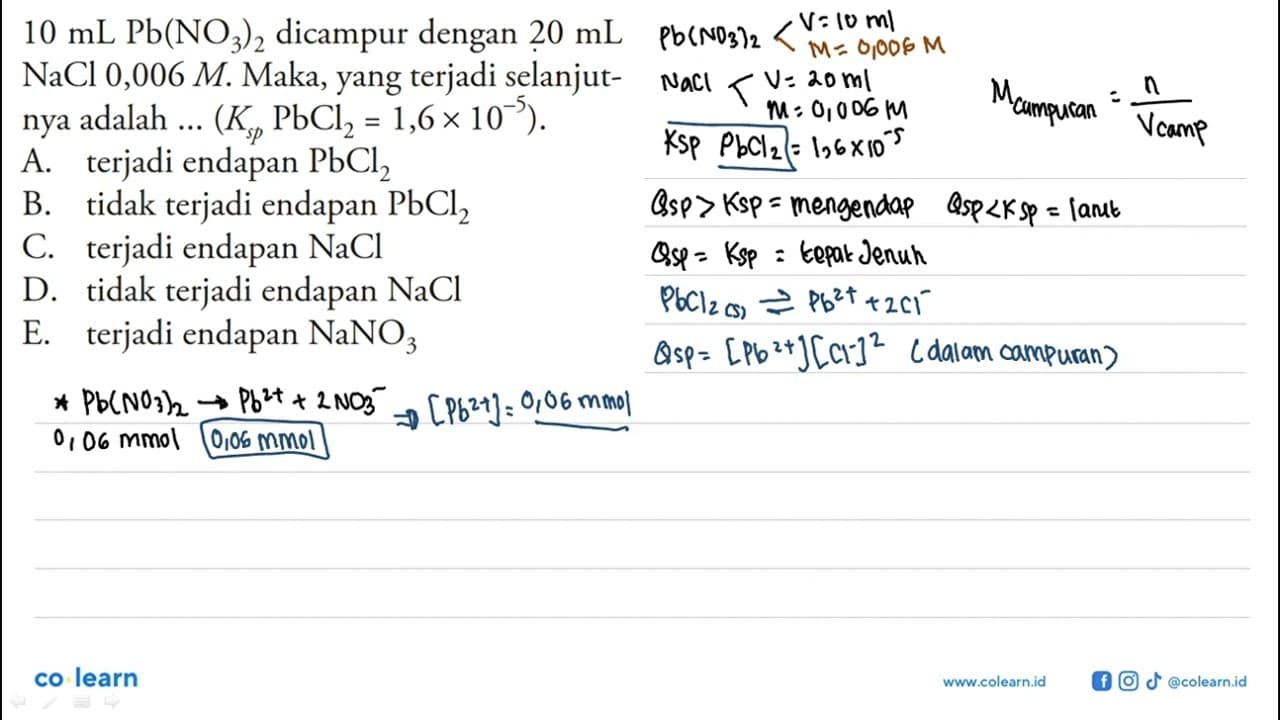 10 mL Pb(NO₃)₂ dicampur dengan 20 mL
NaCl 0,006 M. Maka, yang terjadi selanjut-
nya adalah ... (Kₛₚ PbCl₂ = 1,6 × 10⁻⁵).
A. terjadi endapan PbCl₂
B. tidak terjadi endapan PbCl₂
C. terjadi endapan NaCl
D. tidak terjadi endapan NaCl
E. terjadi endapan NaNO₃
Pb(NO₃)₂ < V = 10 ml
M = 0,006 M
NaCl < V = 20 ml
M = 0,006 M
Ksp PbCl₂ = 1,6 × 10⁻⁵
Mcampuran = n / Vcamp
Qsp > Ksp = mengendap Qsp < Ksp = larut
Qsp = Ksp = tepat Jenuh
PbCl₂ (s) ⇌ Pb²⁺ + 2Cl⁻
Qsp = [Pb²⁺][Cl⁻]² (dalam campuran)
* Pb(NO₃)₂ → Pb²⁺ + 2NO₃⁻ ⇒ [Pb²⁺] = 0,06 mmol
0,06 mmol 0,06 mmol
co learn
www.colearn.id
@colearn.id